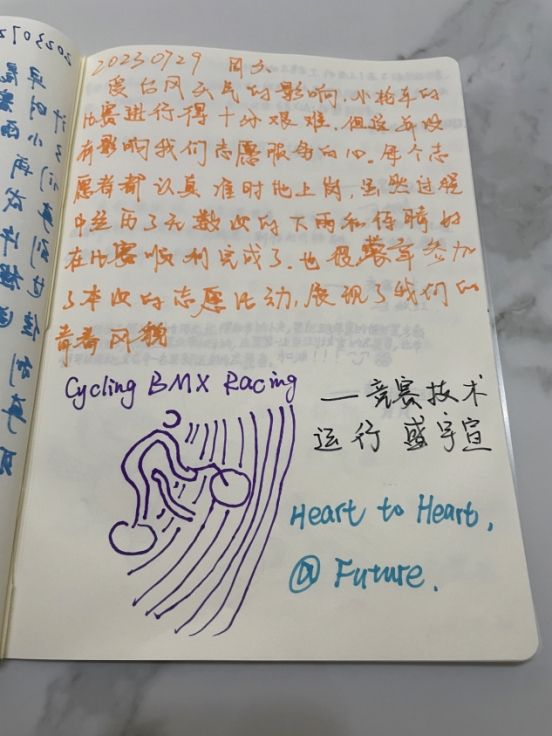 20230729 周六
受台风天气的影响,小轮车的
比赛进行得十分艰难。但这并没
有影响我们志愿服务的心。每个志
愿者都认真准时地上岗,虽然过程
中经历了无数次的下雨和停晴 好
在比赛顺利完成了。也很荣幸参加
了本次的志愿活动,展现了我们的
青春风貌
Cycling BMX Racing
—竞赛技术
运行 盛宇宣
Heart to Heart,
@ Future.